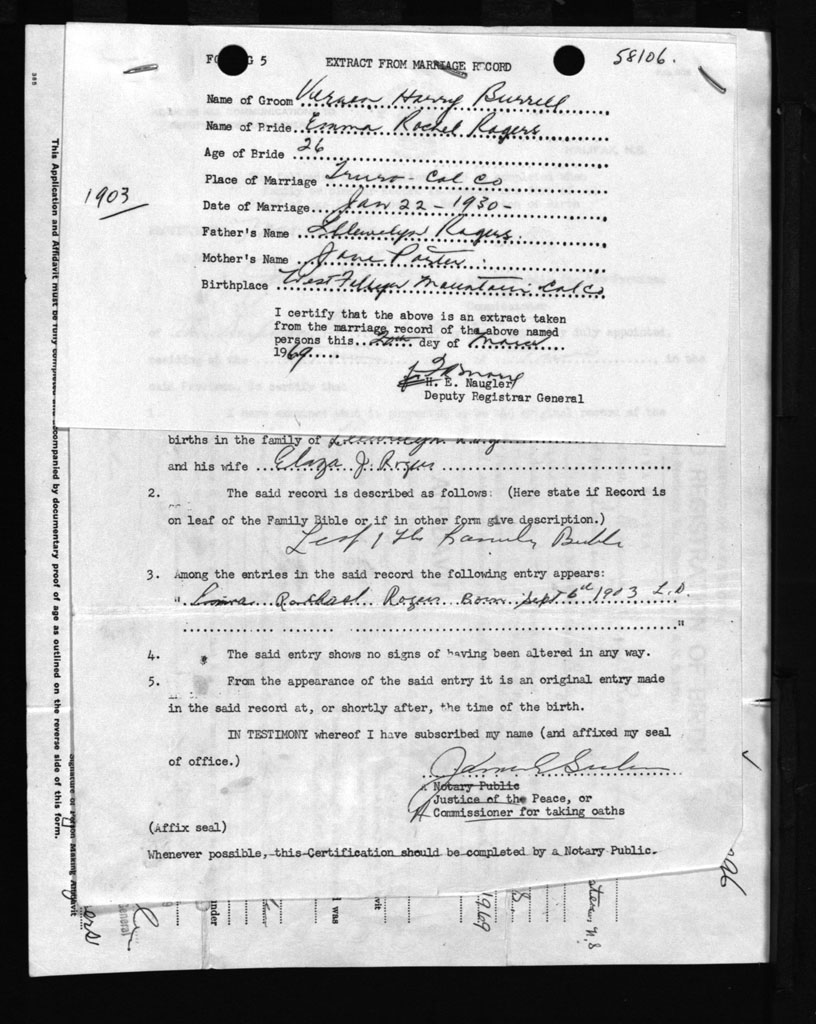 FO G 5 EXTRACT FROM MARRIAGE RECORD 58106.
Name of Groom Vernon Harry Burrell
Name of Bride Emma Rachel Rogers
Age of Bride 26
Place of Marriage Truro - Col Co
1903
Date of Marriage Jan 22 - 1930
Father's Name Llewelyn Rogers
Mother's Name Jane Porter
Birthplace West Mountain Col Co
I certify that the above is an extract taken
from the marriage record of the above named
persons this 20th day of March
1969
H. E. Naugler
Deputy Registrar General
births in the family of
and his wife Eliza J. Rogers
2. The said record is described as follows: (Here state if Record is
on leaf of the Family Bible or if in other form give description.)
Leaf Family Bible
3. Among the entries in the said record the following entry appears:
" Emma Rachael Rogers Born Sept 6th 1903 L.D.
"
4. The said entry shows no signs of having been altered in any way.
5. From the appearance of the said entry it is an original entry made
in the said record at, or shortly after, the time of the birth.
IN TESTIMONY whereof I have subscribed my name (and affixed my seal
of office.)
A Notary Public
Justice of the Peace, or
A Commissioner for taking oaths
(Affix seal)
Whenever possible, this Certification should be completed by a Notary Public.
This Application and Affidavit must be fully accompanied by documentary proof of age as outlined on the reverse side of this form.
Signature of Person Making Affidavit
under
I was
1969
N.S